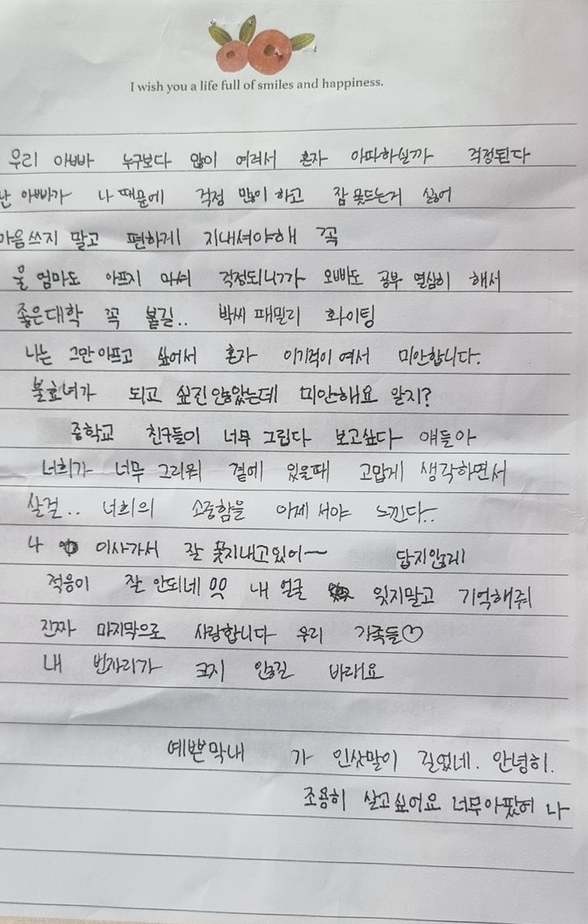 I wish you a life full of smiles and happiness.
우리 아빠 누구보다 많이 여려서 혼자 아파하실까 걱정된다
난 아빠가 나 때문에 걱정 많이 하고 잠 못드는거 싫어
마음쓰지 말고 편하게 지내셔야해 꼭
울 엄마도 아프지 마셔 걱정되니까 오빠도 공부 열심히 해서
좋은대학 꼭 붙길.. 박씨 패밀리 화이팅
나는 그만 아프고 싶어서 혼자 이기적이여서 미안합니다.
불효녀가 되고 싶진 않았는데 미안해요 알지?
중학교 친구들이 너무 그립다 보고싶다 얘들아
너희가 너무 그리워 곁에 있을때 고맙게 생각하면서
살걸.. 너희의 소중함을 이제 서야 느낀다..
나 이사가서 잘 못지내고있어~ 답지않게
적응이 잘 안되네 내 얼굴 잊지말고 기억해줘
진짜 마지막으로 사랑합니다 우리 가족들♡
내 빈자리가 크지 않길 바래요
예쁜막내 가 인삿말이 길었네. 안녕히.
조용히 살고싶어요 너무아팠어 나